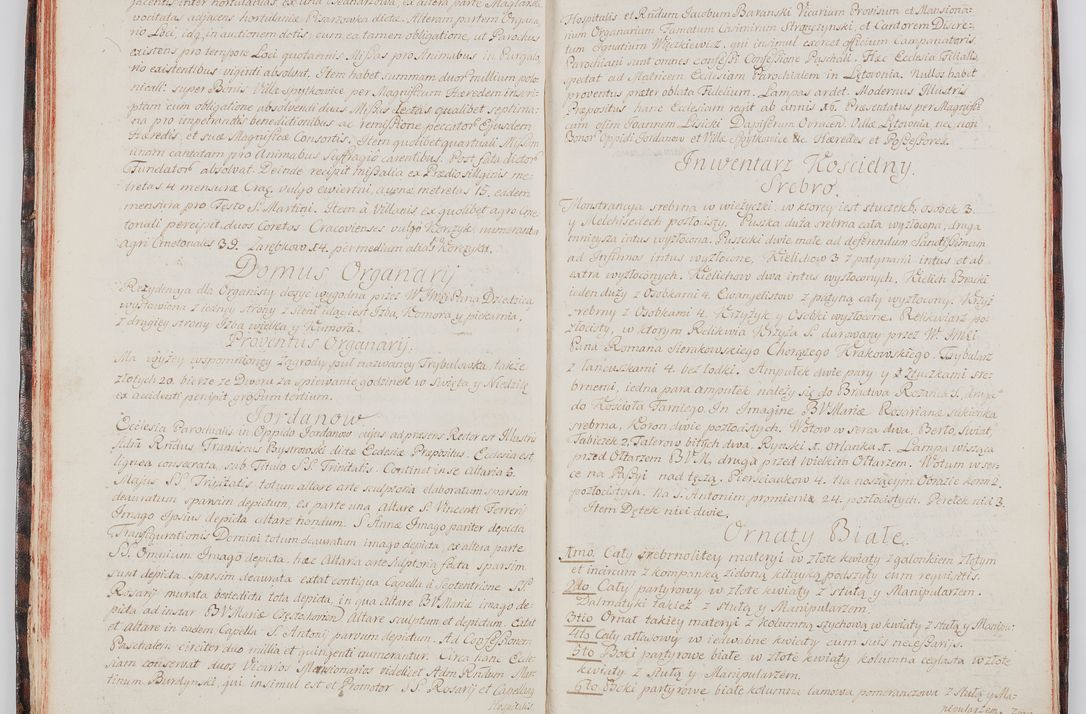 jacentis inter hortulanias, ex una Bednarzowa, ex altera parte Maglarska
vocitatas adjacens hortulania Pisarzowka dicta. Alteram partem Erga
rio Loci, idq, in auctionem dotis, cum ea tamen obligatione, ut Parochus
existens pro tempore Loci quotannis Missas pro Animabus in Purgato
rio existentibus viginti absolvat. Item habet summam duor millium polo
nicali: super Bonis Villæ Spytkovice per Magnificum Hæredem inscri
ptam cum obligatione absolvendi duas Missas Lectas qualibet septima
na pro impetrandis benedictionibus ac remissione peccator Ejusdem
Hæredis et suæ Magnificæ Consortis. Item quolibet quartuali Missam
unam cantatam pro Animabus suffragio carentibus. Post fata dictor
Fundator absolvat. Deinde recipit missalia ex Prædio siliginis me
tretas 4 mensuræ Crac. vulgo cwiertni, avenæ metretas 15. eadem
mensura pro Festo S. Martini. Item à Villanis ex quolibet agro cme
tonali percipit duos Coretos Cracovienses vulgo Korczyk numerantur
agri Cmetonales 39. Zarębkow 14. per medium alias Korczyka.
Domus Organarij
Rezydencya dla Organisty dosyc wygodna przez W. Imci Pana Dziedzica
wystawiona z iedney strony z Sieni idąc iest Izba, Komora y piekarnia,
z drugiey strony Izba wielka y Komora.
Proventus Organarij.
Ma wyżey wspomniony Zagrody, puł nazwaney Trybulowka, także
złotych 20. bierze ze Dworu za spiewanie godzinek w Swięta y Niedzile
ex accidenti percipit grossum tertium.
Jordanow
Ecclesia Parochialis in Oppido Jordanow cujus ad præsens Rector est Illustris
Adm Rndus Franciscus Bystrowski dictæ Ecclesiæ Præpositus. Ecclesia est
lignea consecrata, sub Titulo SS. Trinitatis. Continet in se Altaria 6.
Majus SS. Trinitatis totum altare arte sculptoria elaboratum sparsim
deauratum sparsim depictum, ex parte una Altare S. Vincenti Ferreri
Imago Ipsius depicta altare nondum. S. Annæ Imago pariter depicta
Transfigurationis Domini totum deauratum imago depicta, ex altera parte
SS. Omnium Imago depicta, hæc Altaria arte sculptoria facta sparsim
sunt depicta, sparsim deaurata extat contigua Capella à Septentrione SS.
Rosarij murata benedicta tota depicta, in qua altare BV Mariæ imago de-
picta ad instar BV Mariæ Częstochovien Altare sculptum et depictum. Extat
et Altare in eadem Capella S. Antonij parvum depictum. Ad Confessionem
Paschalem circiter duo millia et quingenti numerantur. Circa hanc Eccle-
siam conservat duos Vicarios Mansionarios videlicet Adm Rndum Mar
tinum Burdynski, qui insimul est et Promotor SS. Rosarij et Capellanus
Hospitalis
Hospitalis et Rndum Jacobum Baranski Vicarium Provisum et Mansiona-
rium Organarium Famatum Casimirum Strączynski, et Cantorem Discre-
tum Ignatium Mączkiewicz, qui insimul exercet officium Campanatoris
Parochiani sunt omnes confessi Confessione Paschali. Hæc Ecclesia Filialis
spectat ad Matricem Ecclesiam Parochialem in Łętownia. Nullos habet
proventus præter oblata Fidelium. Lampas ardet. Modernus Illustris
Præpositus hanc Ecclesiam regit ab annis 16. Præsentatus per Magnifi
cum olim Joannem Lisicki Dapiferum Ovrucen. Villæ Łętownia nec non
Bonor Oppidi Jordanow et Villæ Spytkowice &c Hæredes et Possessores.
Inwentarz Koscielny.
Srebro.
Monstrancya srebrna w wieżyczki, w ktorey iest sztuczek 6. osobek 3.
y Melchisedech pozłocisty. Puszka duża srebrna cała wyzłocona, druga
mnieysza intus wyzłocona. Puszecki dwie małe ad deferendum Sanctissimum
ad Infirmos intus wyzłocone, Kielichow 3 z patynami intus et ab
extra wyzłoconych. Kielichow dwa intus wyzłoconych, Kielich Bracki
ieden duży z Osobkami 4. Ewangelistow z patyną cały wyzłocony. Krzyż
srebrny z Osobkami 4. Krzyżyk y Osobki wyzłocone. Relikwiarz po-
złocisty, w ktorym Relikwia Krzyża S. darowany przez W. Imci
Pana Romana Sierakowskiego Chorązego Krakowskiego. Trybularz
z łancuszkami 4. bez lodki. Ampułek dwie pary y z Tyszkami sre-
brnemi, iedna para ampułek należy się do Bractwa Rozanca S. druga
do Koscioła Farnego. In Imagine BV Mariæ Rosarianæ sukienka
srebrna, Koron dwie pozłocistych. Wotow w serca dwa, Berło, swiat,
Tabiczek 2, Talerow bitych dwa, Rynski 1. Orlanka 1. Lampa wisząca
przed Ołtarzem BVM, druga przed Wielkim Ołtarzem. Wotum w ser-
ce na Passyi nad tęczą. Piersciankow 4. Na noszącym Obrazie koron 2.
pozłocistych. Na S. Antonim promienia 24. pozłocistych. Perełek nici 3.
Item Dętek nici dwie.
Ornaty Białe.
1mo Cały srebrnolitey materyi w złote kwiaty z galonkiem złotym
et incircum z kompanką zieloną kitayką podszyty cum requisitis.
2do Cały partyrowy w złote kwiaty z stułą y Manipularzem.
Dalmatyki takież z stułą y Manipularzem.
3tio Ornat takiey materyi z kolumną szychową w kwiaty z stułą y Manipu:
4to Cały atłasowy w iedwabne kwiaty cum suis necessarijs.
5to Boki partyrowe białe w złote kwiaty kolumna ceglasta w złote
kwiaty z stułą y Manipularzem.
6to Boki partyrowe białe kolumna lamowa pomeranczowa z stułą y Ma-
nipularzem.